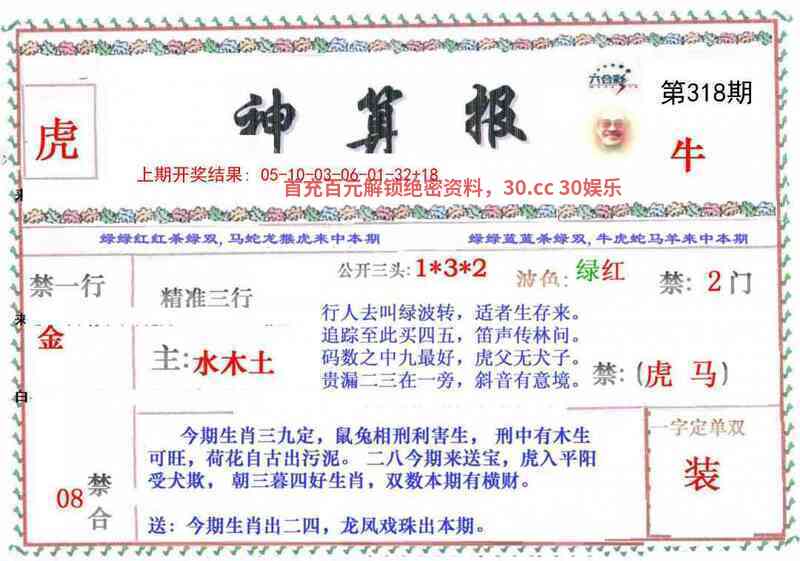 六合彩
第318期
虎
神算报
牛
上期开奖结果：05-10-03-06-01-32+18
首充百元解锁绝密资料，30.cc 30娱乐
绿绿红红杀绿双,马蛇龙猴虎来中本期
绿绿蓝蓝杀绿双,牛虎蛇马羊来中本期
禁一行
金
精准三行
主:水木土
公开三头:1*3*2
波色:绿红
禁:2门
行人去叫绿波转，适者生存来。
追踪至此买四五，笛声传林间。
码数之中九最好，虎父无犬子。
贵漏二三在一旁，斜音有意境。
禁:(虎 马)
08
禁合
今期生肖三九定，鼠兔相刑利害生， 刑中有木生
可旺，荷花自古出污泥。 二八今期来送宝，虎入平阳
受犬欺， 朝三暮四好生肖，双数本期有横财。
送：今期生肖出二四，龙凤戏珠出本期。
一字定单双
装